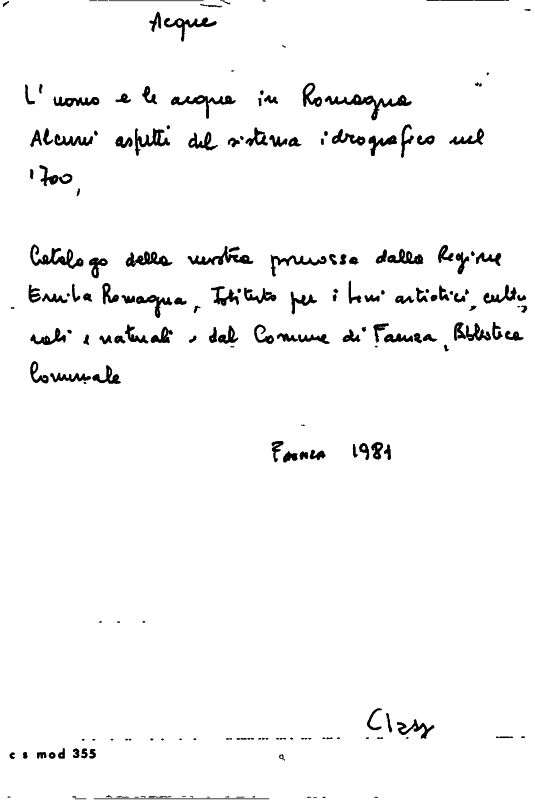 Acque
L'uomo e le acque in Romagna
Alcuni aspetti del sistema idrografico nel
'700,
Catalogo della mostra promossa dalla Regione
Emilia Romagna, Istituto per i beni artistici, cultu
rali e naturali e dal Comune di Faenza, Biblioteca
Comunale
Faenza 1981
Class
c s mod 355